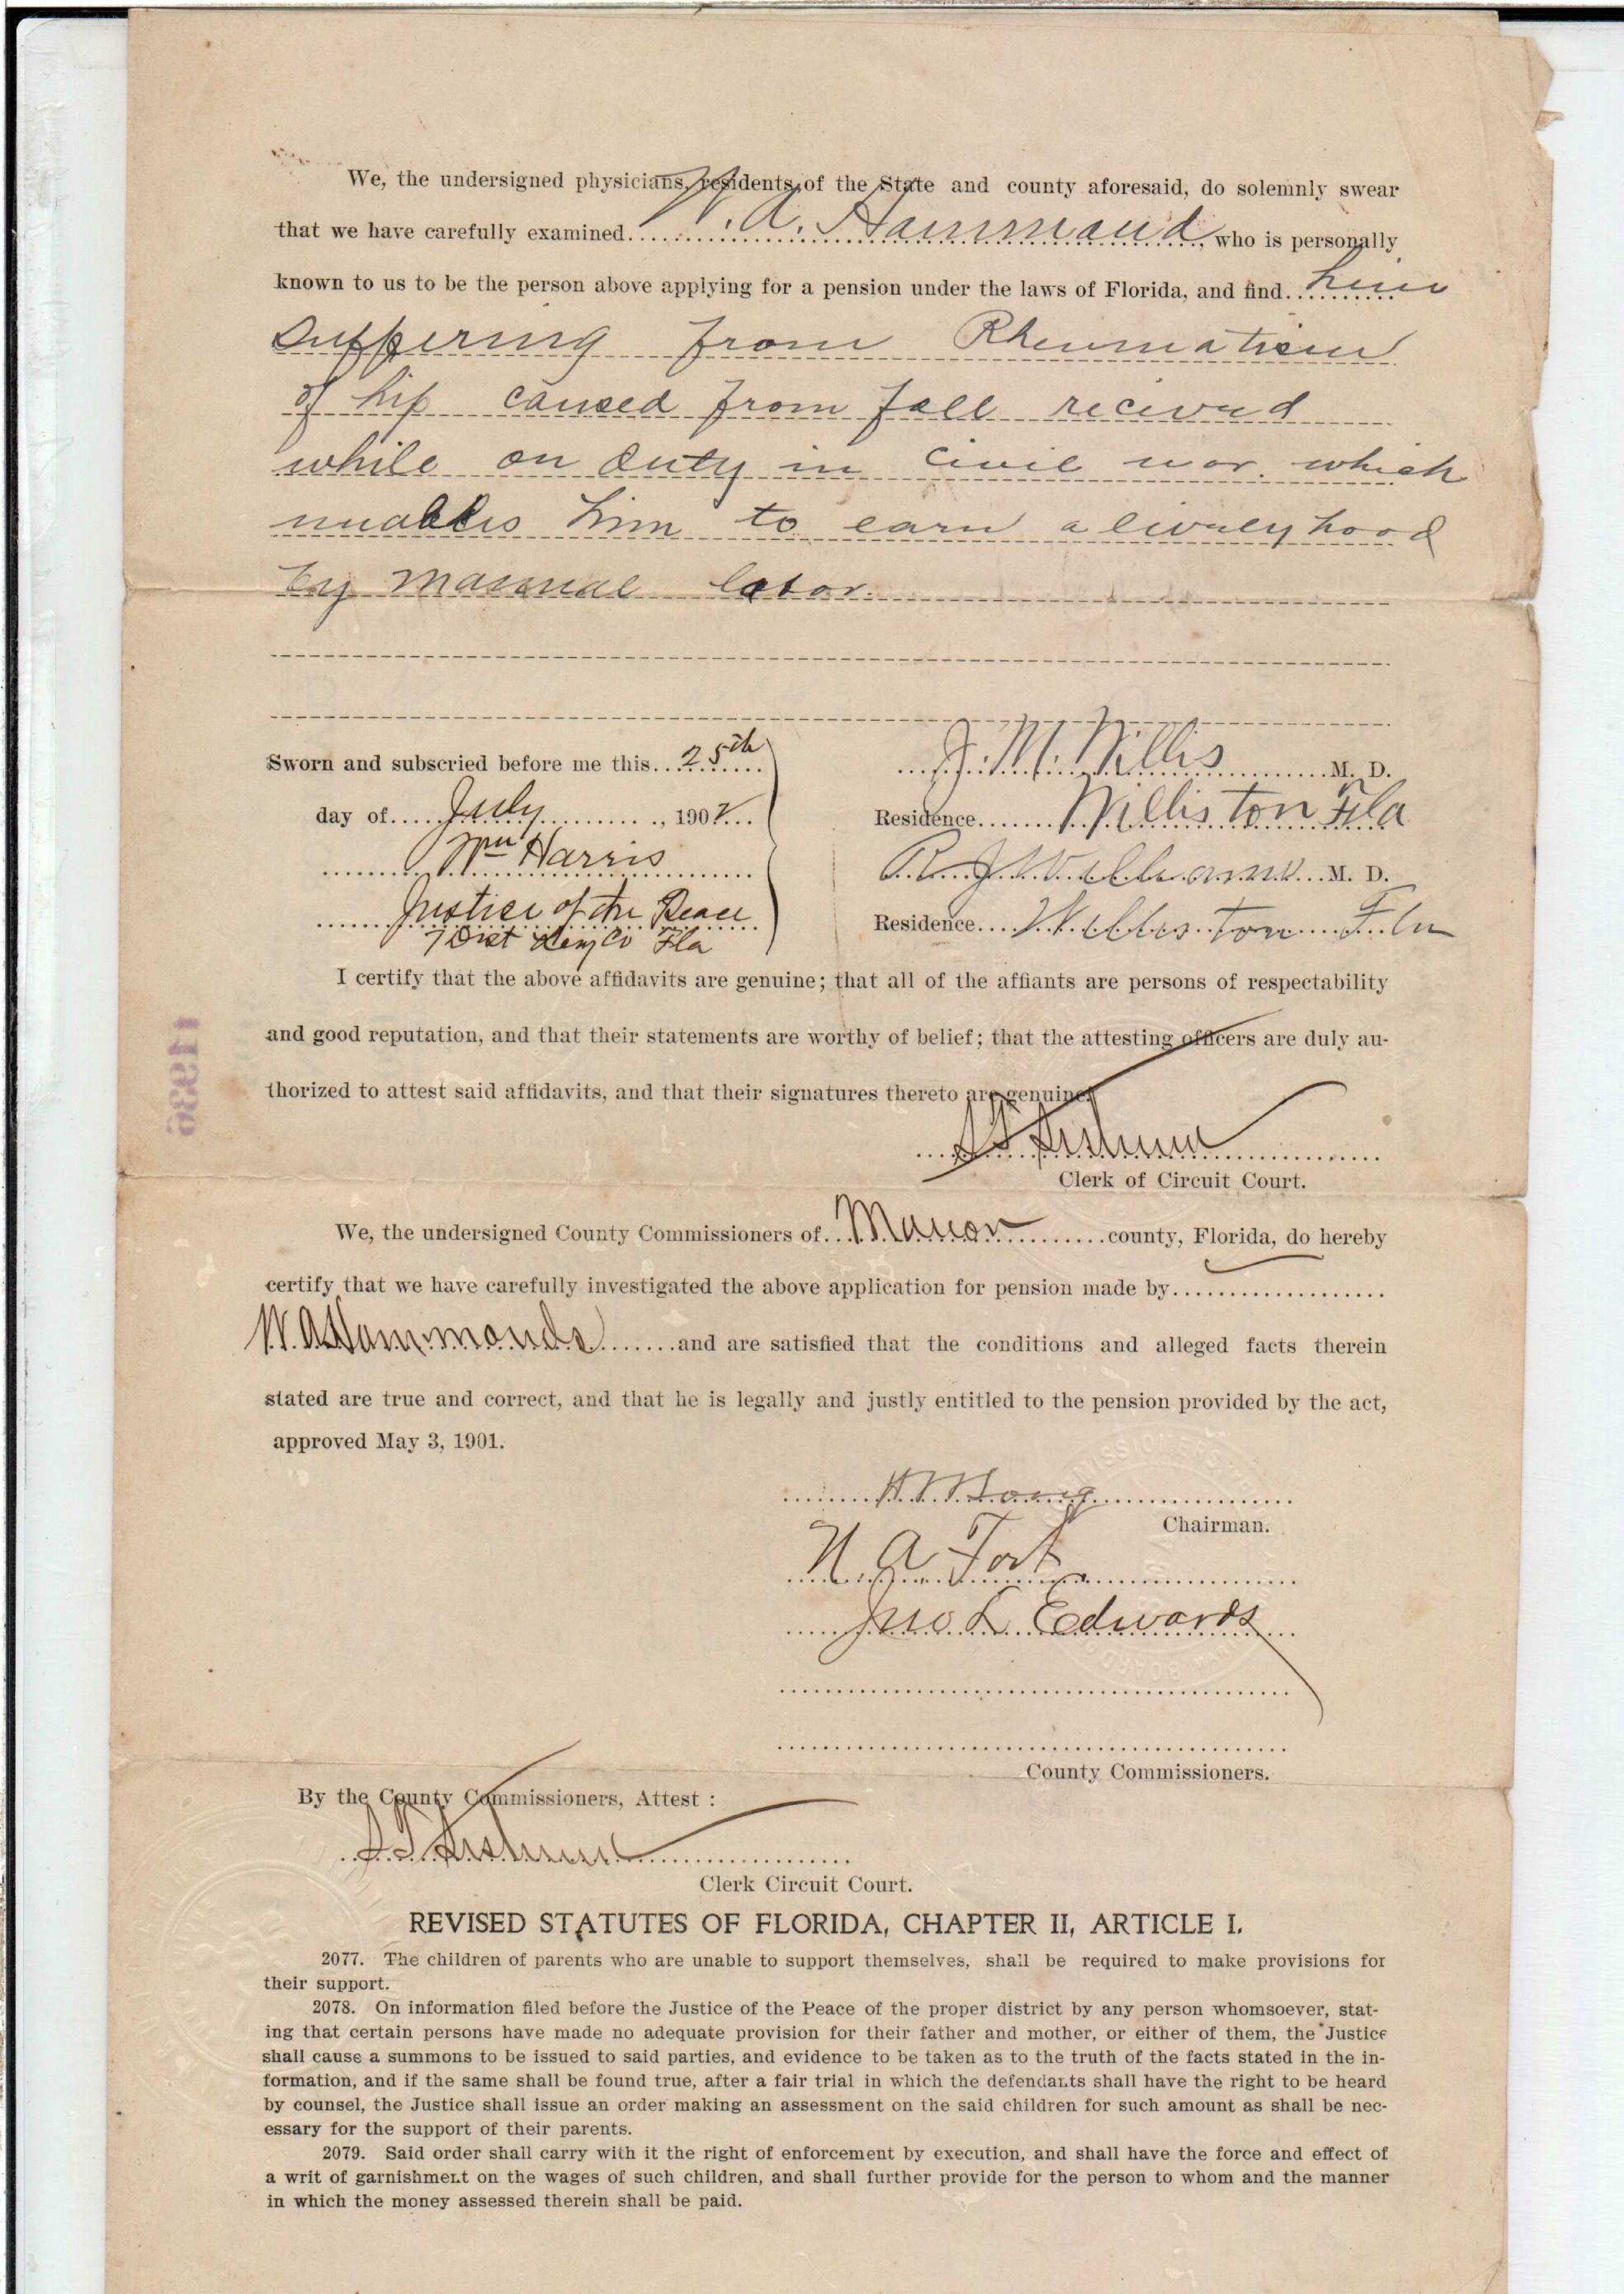 We, the undersigned physicians, residents of the State and county aforesaid, do solemnly swear
that we have carefully examined W. A. Hammond, who is personally
known to us to be the person above applying for a pension under the laws of Florida, and find him
suffering from Rheumatism
of hip caused from fall recieved
while on duty in civil war. which
unables him to earn a livelyhood
by manual labor.
Sworn and subscried before me this 25th
day of July, 1902
Wm Harris
Justice of the Peace
7 Dist Levy Co Fla
J. M. Willis M. D.
Residence Williston Fla
R. J. Williams M. D.
Residence Williston Fla
I certify that the above affidavits are genuine; that all of the affiants are persons of respectability
and good reputation, and that their statements are worthy of belief; that the attesting officers are duly au-
thorized to attest said affidavits, and that their signatures thereto are genuine.
Clerk of Circuit Court.
11936
We, the undersigned County Commissioners of Marion county, Florida, do hereby
certify that we have carefully investigated the above application for pension made by
W. A. Hammonds and are satisfied that the conditions and alleged facts therein
stated are true and correct, and that he is legally and justly entitled to the pension provided by the act,
approved May 3, 1901.
Chairman.
N A Fort
Jno L Edwards
County Commissioners.
By the County Commissioners, Attest :
Clerk Circuit Court.
REVISED STATUTES OF FLORIDA, CHAPTER II, ARTICLE I.
2077. The children of parents who are unable to support themselves, shall be required to make provisions for
their support.
2078. On information filed before the Justice of the Peace of the proper district by any person whomsoever, stat-
ing that certain persons have made no adequate provision for their father and mother, or either of them, the Justice
shall cause a summons to be issued to said parties, and evidence to be taken as to the truth of the facts stated in the in-
formation, and if the same shall be found true, after a fair trial in which the defendants shall have the right to be heard
by counsel, the Justice shall issue an order making an assessment on the said children for such amount as shall be nec-
essary for the support of their parents.
2079. Said order shall carry with it the right of enforcement by execution, and shall have the force and effect of
a writ of garnishment on the wages of such children, and shall further provide for the person to whom and the manner
in which the money assessed therein shall be paid.